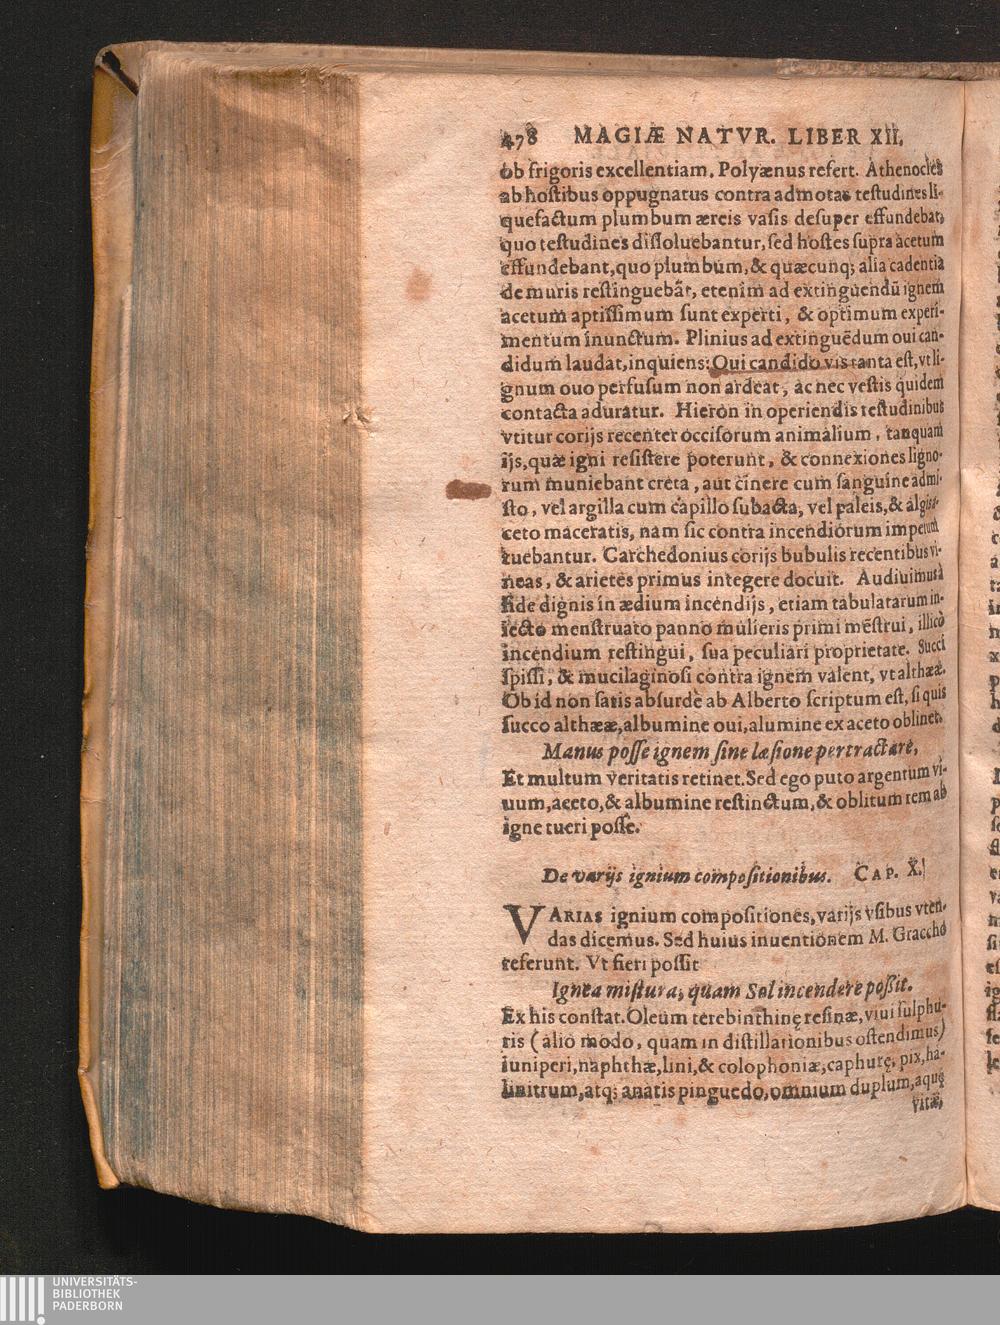 478 MAGIÆ NATVR. LIBER XII.
ob frigoris excellentiam. Polyænus refert. Athenocles
ab hoſtibus oppugnatus contra admotas teſtudines li-
quefactum plumbum æreis vaſis deſuper effundebat,
quo teſtudines diſſoluebantur, ſed hoſtes ſupra acetum
effundebant, quo plumbum, & quæcunq; alia cadentia
de muris reſtinguebãt, etenim ad extinguendũ ignem
acetum aptiſſimum ſunt experti, & optimum experi-
mentum inunctum. Plinius ad extinguẽdum oui can-
didum laudat, inquiens: Oui candido vis tanta eſt, vt li-
gnum ouo perfuſum non ardeat, ac nec veſtis quidem
contacta aduratur. Hieron in operiendis teſtudinibus
vtitur corijs recenter occiſorum animalium, tanquam
ijs, quæ igni reſiſtere poterunt, & connexiones ligno-
rum muniebant creta, aut cinere cum ſanguine admi-
ſto, vel argilla cum capillo ſubacta, vel paleis, & alga a-
ceto maceratis, nam ſic contra incendiorum imperum
tuebantur. Carchedonius corijs bubulis recentibus vi-
neas, & arietes primus integere docuit. Audiuimus à
fide dignis in ædium incendijs, etiam tabulatarum in-
iecto menſtruato panno mulieris primi mẽſtrui, illicò
incendium reſtingui, ſua peculiari proprietate. Succi
ſpiſſi, & mucilaginoſi contra ignem valent, vt althææ.
Ob id non ſatis abſurdè ab Alberto ſcriptum eſt, ſi quis
ſucco althææ, albumine oui, alumine ex aceto oblinet,
Manus poſſe ignem ſine læſione pertractare,
Et multum veritatis retinet. Sed ego puto argentum vi-
uum, aceto, & albumine reſtinctum, & oblitum rem ab
igne tueri poſſe.
De varijs ignium compoſitionibus. CAP. X.
VARIAS ignium compoſitiones, varijs vſibus vten-
das dicemus. Sed huius inuentionem M. Graccho
referunt. Vt fieri poſſit
Ignea miſtura, quam Sol incendere poſſit.
Ex his conſtat. Oleum terebinthinę reſinæ, viui ſulphu-
ris (alio modo, quam in diſtillationibus oſtendimus)
iuniperi, naphthæ, lini, & colophoniæ, caphurę, pix, ha-
linitrum, atq; anatis pinguedo, omnium duplum, aquę
vitæ,
UNIVERSITÄTS-
BIBLIOTHEK
PADERBORN